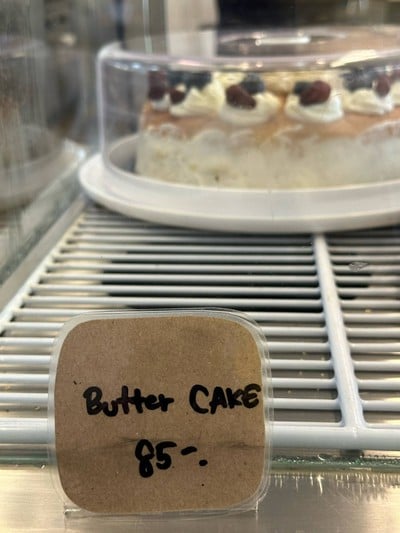 Butter CAKE
85-.